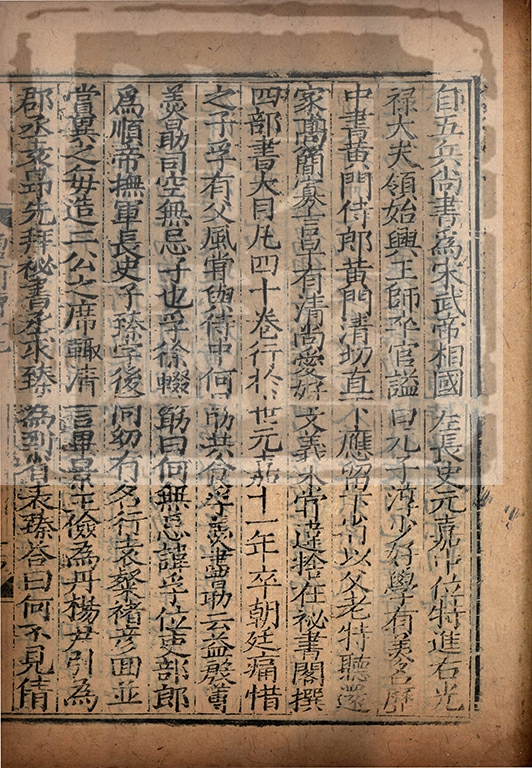 自五兵尚書爲宋武帝相國左長史元嘉中位特進右光
祿大夫領始興王師卒官謚曰元子淳少好學有美名歷
中書黃門侍郎黃門清切直下應留下省以父老特聽還
家高簡寡言早有清尚愛好文義未嘗違捨在祕書閣撰
四部書大目凡四十卷行於世元嘉十一年卒朝廷痛惜
之子孚有父風嘗與侍中何勗共食孚羹盡勗云益殷蓴
羹勗司空無忌子也孚徐輟筯曰何無忌諱孚位吏部郎
爲順帝撫軍長史子臻字後同幼有名行袁粲褚彥回並
賞異之每造二公之席輒清言畢景王儉為丹楊尹引為
郡丞袁昂先拜祕書丞求臻為到省表臻答曰何不見倩